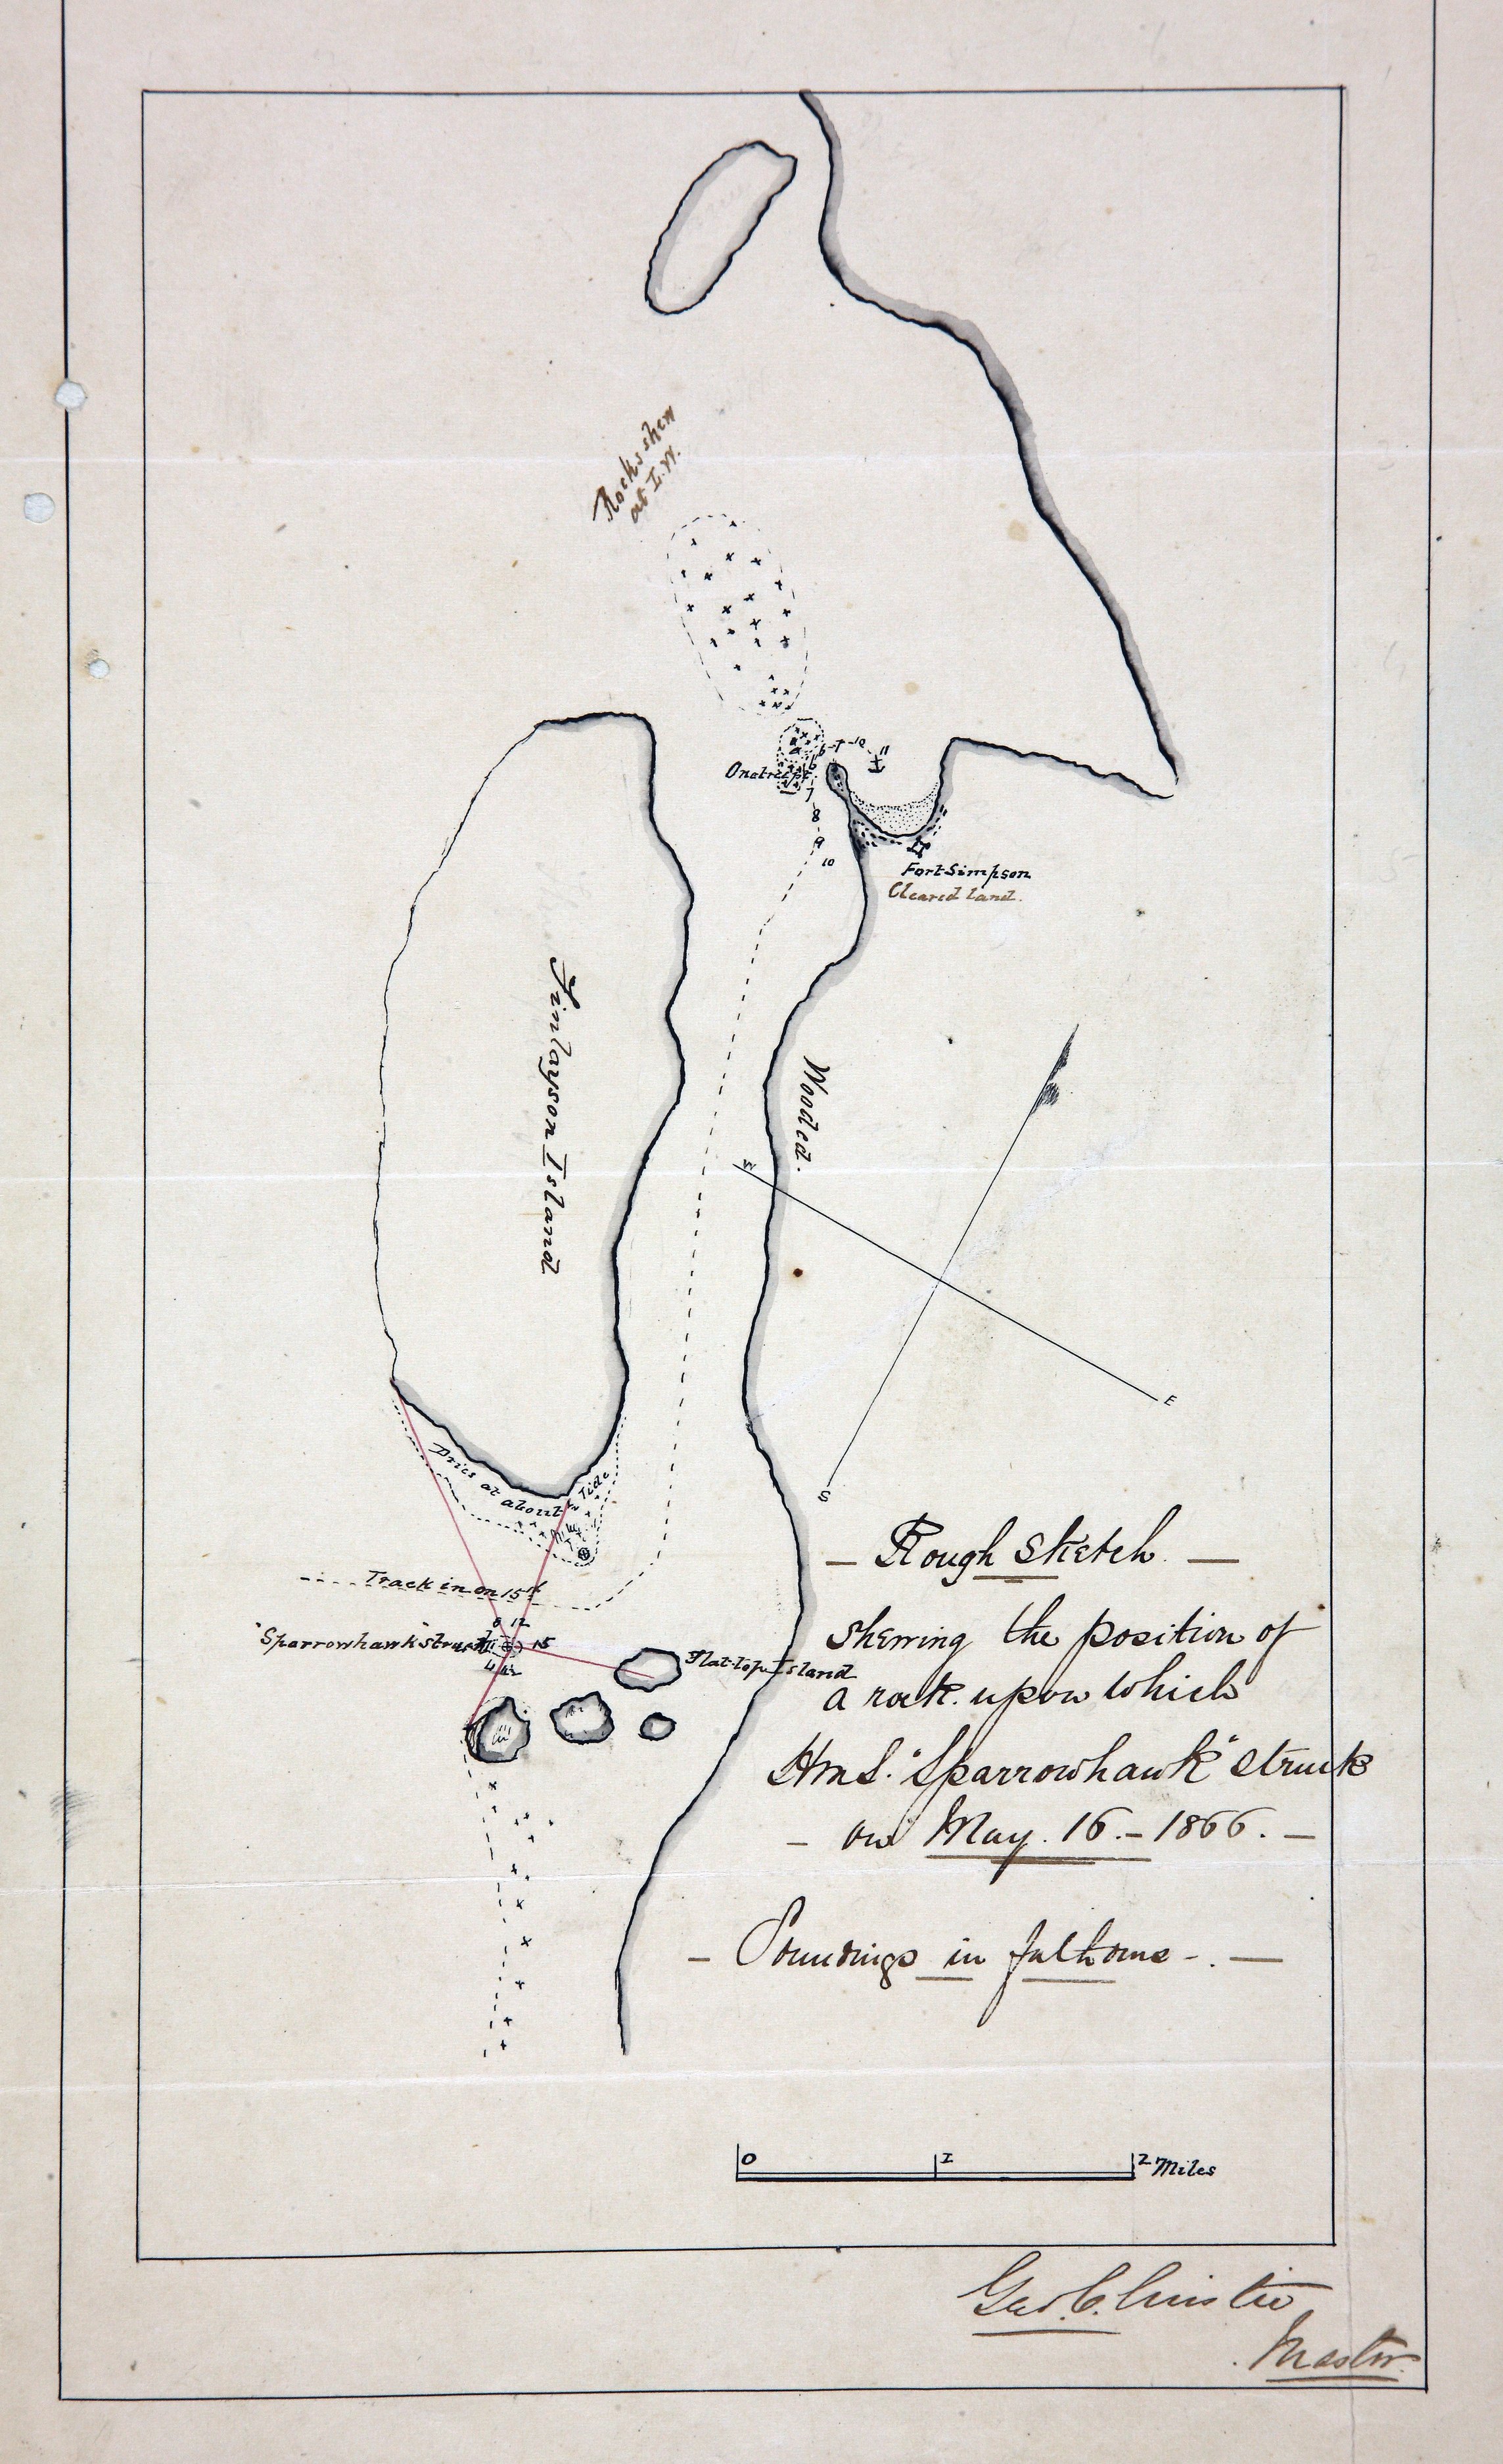 Rocks shew
at L.W.
6 - 7 - 10
11
6
7
8
9
10
Fort Simpson
Cleared land.
Finlayson Island
Wooded.
W
E
S
Dries at about
Tide
Track in on 15th
8 12
"Sparrowhawk" struck
15
4
Flat-top Island
— Rough Sketch. —
shewing the position of
a rock upon which
H.M.S. "Sparrowhawk" struck
— on May. 16. – 1866. —
— Soundings in fathoms -. —
0 1 2 Miles
Master.